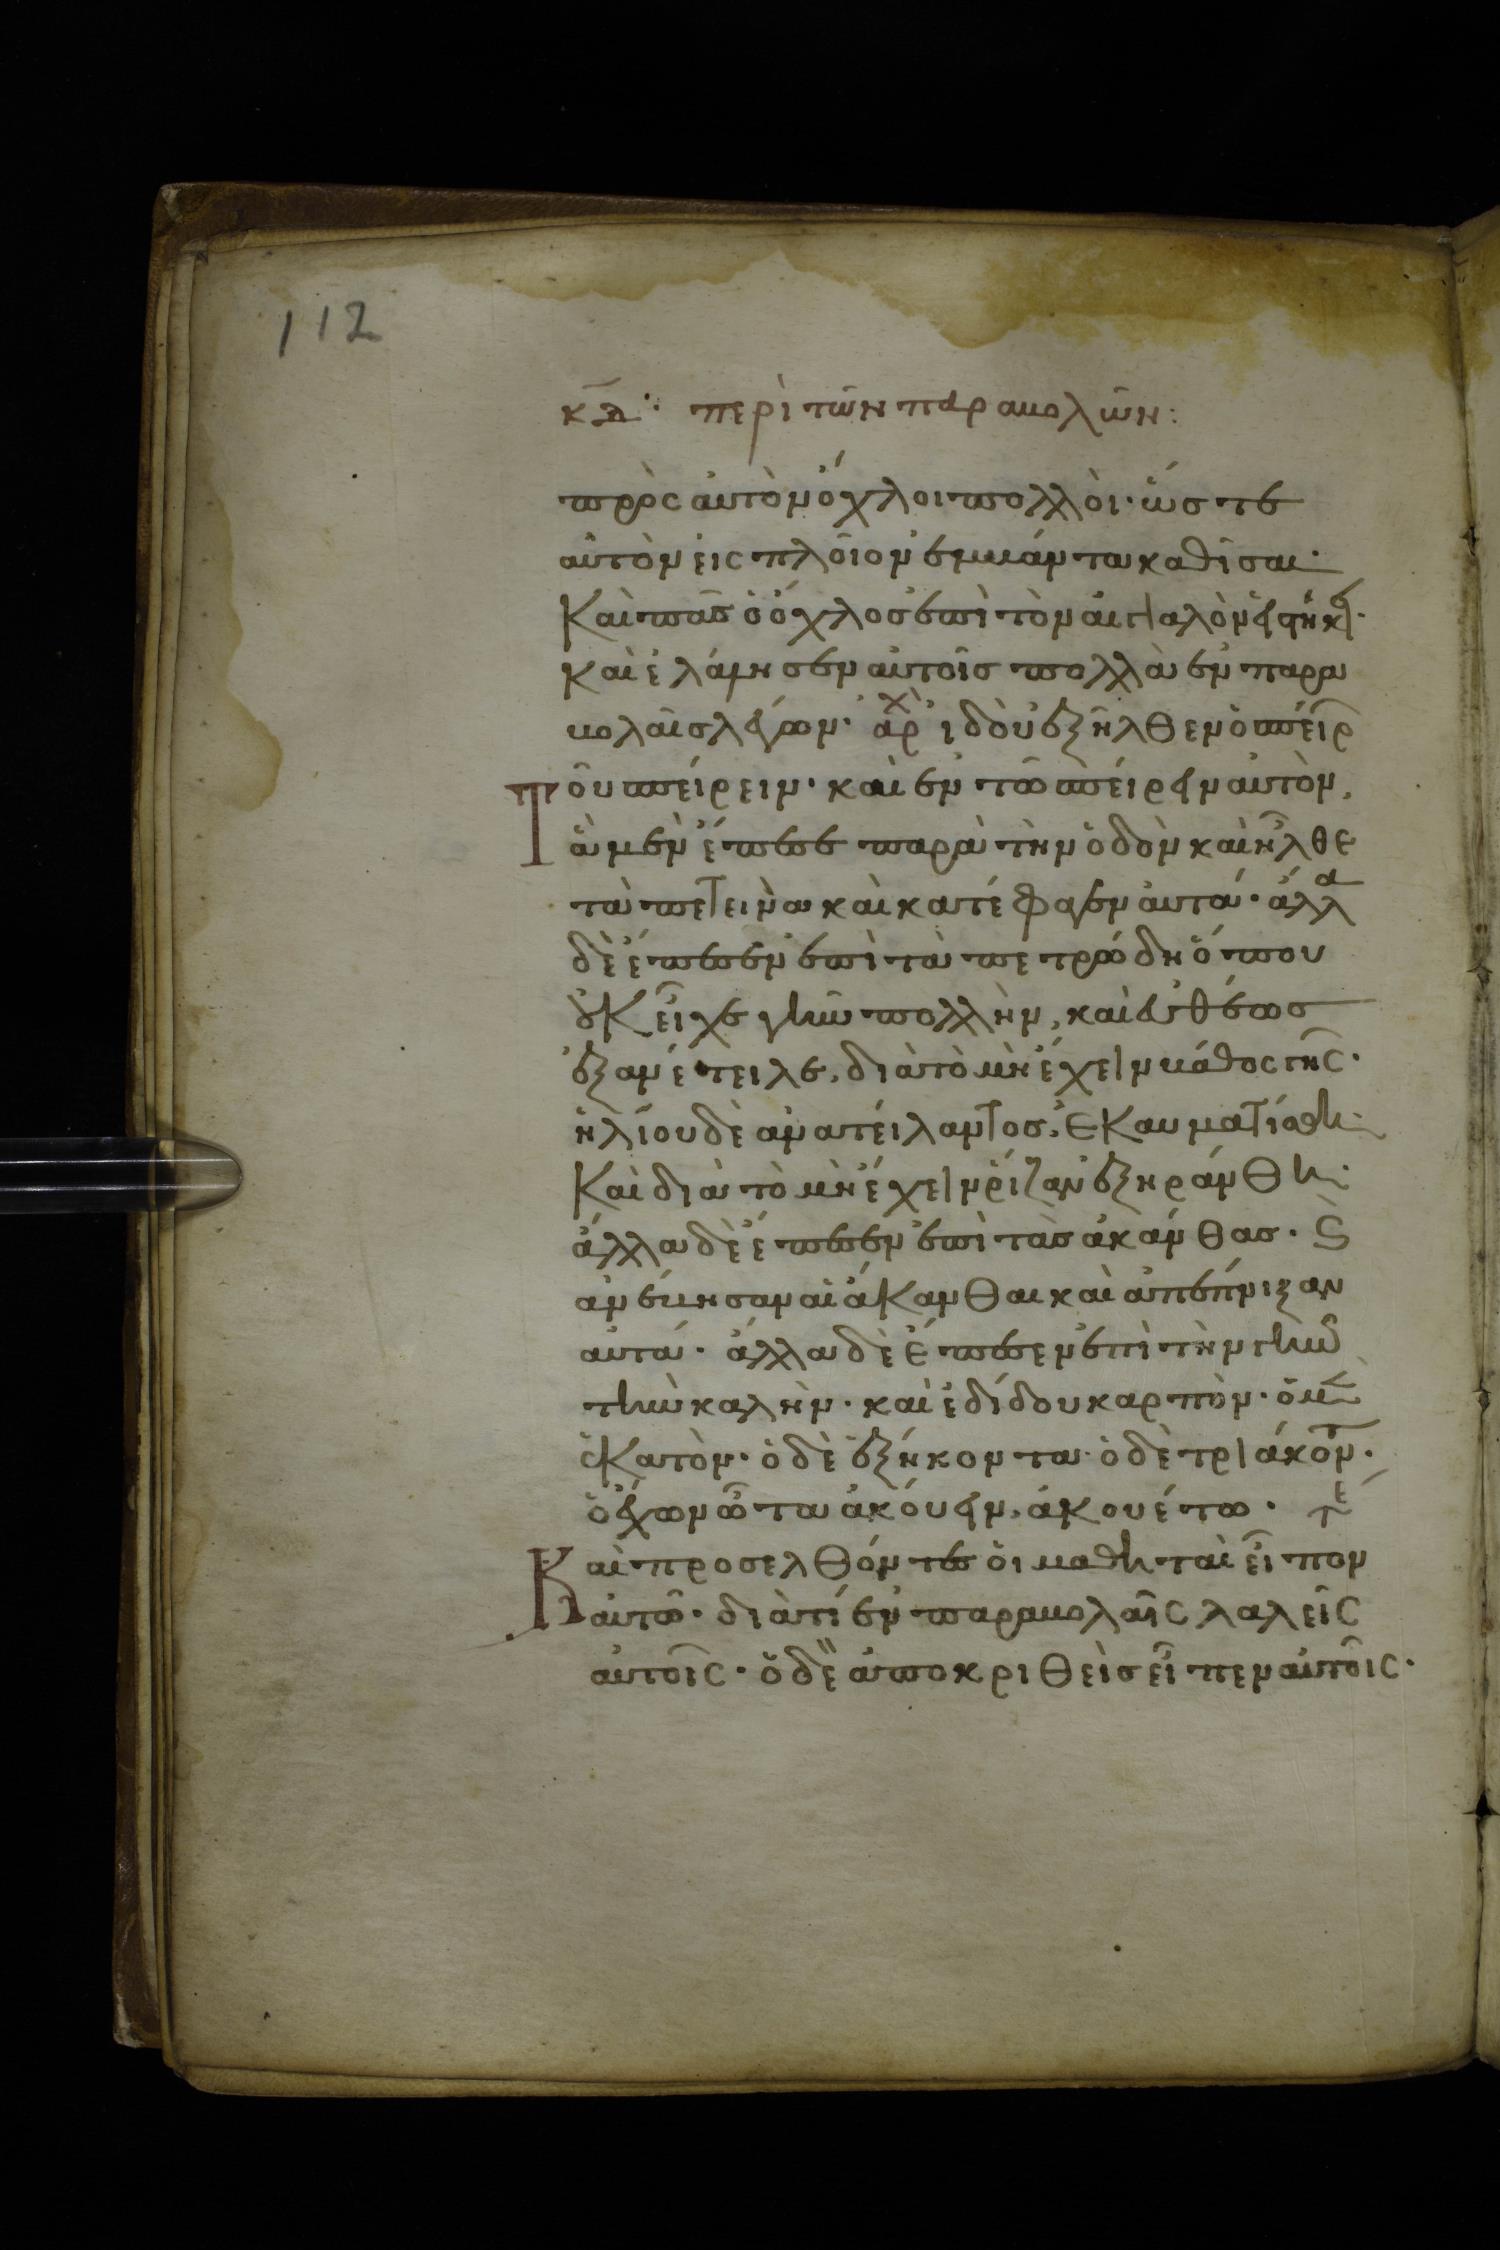 112
κδ περὶ τῶν παραβολῶν:
πρὸς αὐτὸν ὄχλοι πολλοὶ· ὥστε
αὐτὸν εἰς πλοῖον ἐμβάντα καθῖσαι·
Καὶ πᾶς ὁ ὄχλος ἐπὶ τὸν αἰγιαλὸν εἱστήκει·
Καὶ ἐλάλησεν αὐτοῖς πολλὰ ἐν παρα
βολαῖς λέγων· ἀρχ ἰδοὺ ἐξῆλθεν ὁ σπείρ
Τοῦ σπείρειν· καὶ ἐν τῶ σπείρειν αὐτὸν,
ἃ μὲν ἔπεσε παρὰ τὴν ὁδὸν καὶ ἦλθε
τὰ πετεινὰ καὶ κατέφαγεν αὐτά· ἄλλα
δὲ ἔπεσεν ἐπὶ τὰ πετρώδη ὅπου
οὐκ εἶχε γῆν πολλὴν, καὶ εὐθέως
ἐξανέτειλε, διὰ τὸ μὴ ἔχειν βάθος γῆς·
ἡλίου δὲ ἀνατείλαντος, ἐκαυματίσθη
Καὶ διὰ τὸ μὴ ἔχειν ῥίζαν ἐξηράνθη·
ἄλλα δὲ ἔπεσεν ἐπὶ τὰς ἀκάνθας· ϗ
ἀνέβησαν αἱ ἄκανθαι καὶ ἀπέπνιξαν
αὐτά· ἄλλα δὲ ἔπεσεν ἐπὶ τὴν γῆν
τὴν καλὴν· καὶ ἐδίδου καρπὸν· ὃ μὲν
ἑκατὸν· ὃ δὲ ἑξήκοντα· ὃ δὲ τριάκοντ·
ὁ ἔχων ὦτα ἀκούειν, ἀκουέτω· τέ
Καὶ προσελθόντες οἱ μαθηταὶ εἶπον
αὐτῶ· διατί ἐν παραβολαῖς λαλεῖς
αὐτοῖς· ὁ δὲ ἀποκριθεὶς εἶπεν αὐτοῖς·